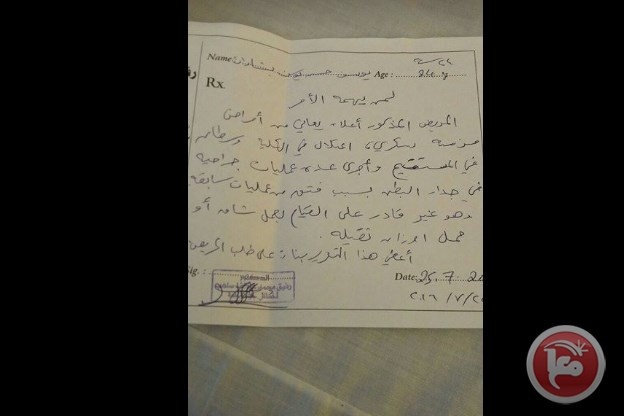 Name يوسف حسن يوسف بشارات Age : ٢٤ سنة
Rx
لمن يهمه الأمر
المريض المذكور أعلاه يعاني من أمراض
مزمنة سكري، اعتلال في الكلى وسرطان
في المستقيم وأجرى عدة عمليات جراحية
في جدار البطن بسبب فتق من عمليات سابقة
وهو غير قادر على القيام بعمل شاق أو
حمل اوزان ثقيلة.
أعطي هذا التقرير بناء على طلب المريض
Date: 25.7.20
معا